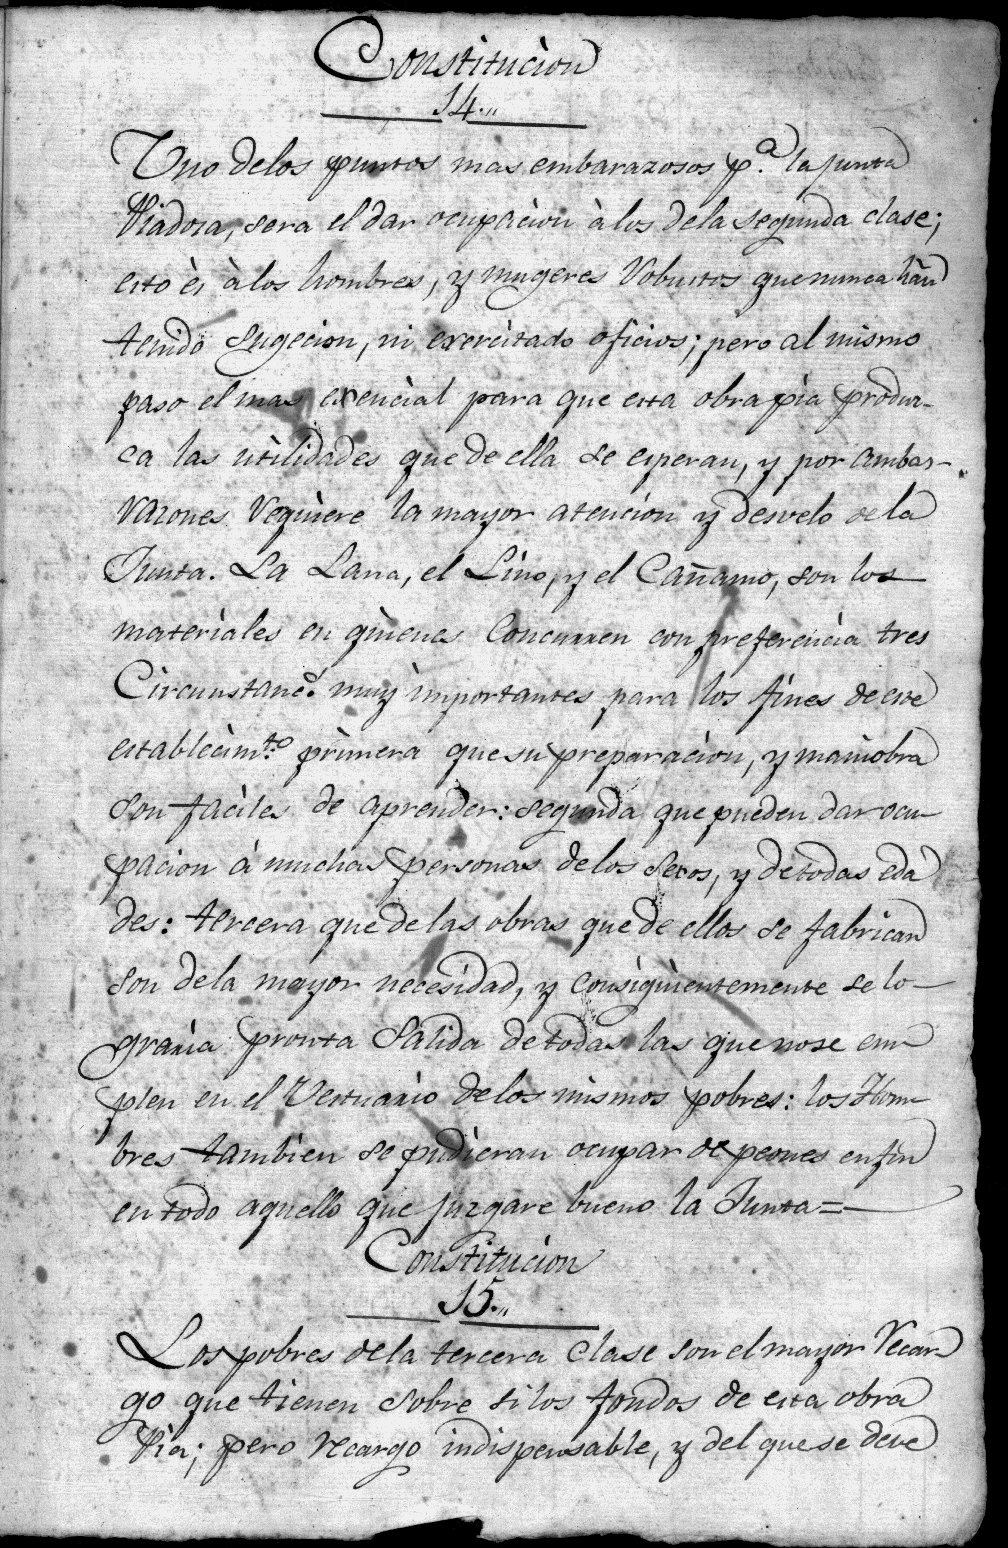 Constitucion
14.,,
Uno delos puntos mas embarazosos p.ª la junta
Piadosa, sera el dar ocupacion à los dela segunda clase;
esto ès à los hombres, y mugeres Robustos que nunca hàn
tenido sugecion, ni exercitado oficios; pero al mismo
paso el mas esencial para que esta obra pia produz-
ca las utilidades que de ella se esperan, y por ambas
Razones Requiere la mayor atencion y desvelo de la
Junta. La Lana, el Lino, y el Cañamo, son los
materiales en quienes Concurren con preferencia tres
Circunstanc.s muy importantes para los fines de este
establecim.to primera que su preparacion, y maniobra
son faciles de aprender: segunda que pueden dar ocu-
pacion à muchas personas de los Sexos, y de todas eda
des: tercera que de las obras que de ellos se fabrican
son dela mayor necesidad, y consiguientemente se lo-
graria pronta Salida de todas las que no se em
pleen en el Vestuario delos mismos pobres: los Hom-
bres tambien se pudieran ocupar de peones en fin
en todo aquello que juzgare bueno la Junta=
Constitucion
15.,,
Los pobres dela tercera Clase son el mayor Recar-
go que tienen sobre si los fondos de esta obra
Pia; pero recargo indispensable, y del que se deve